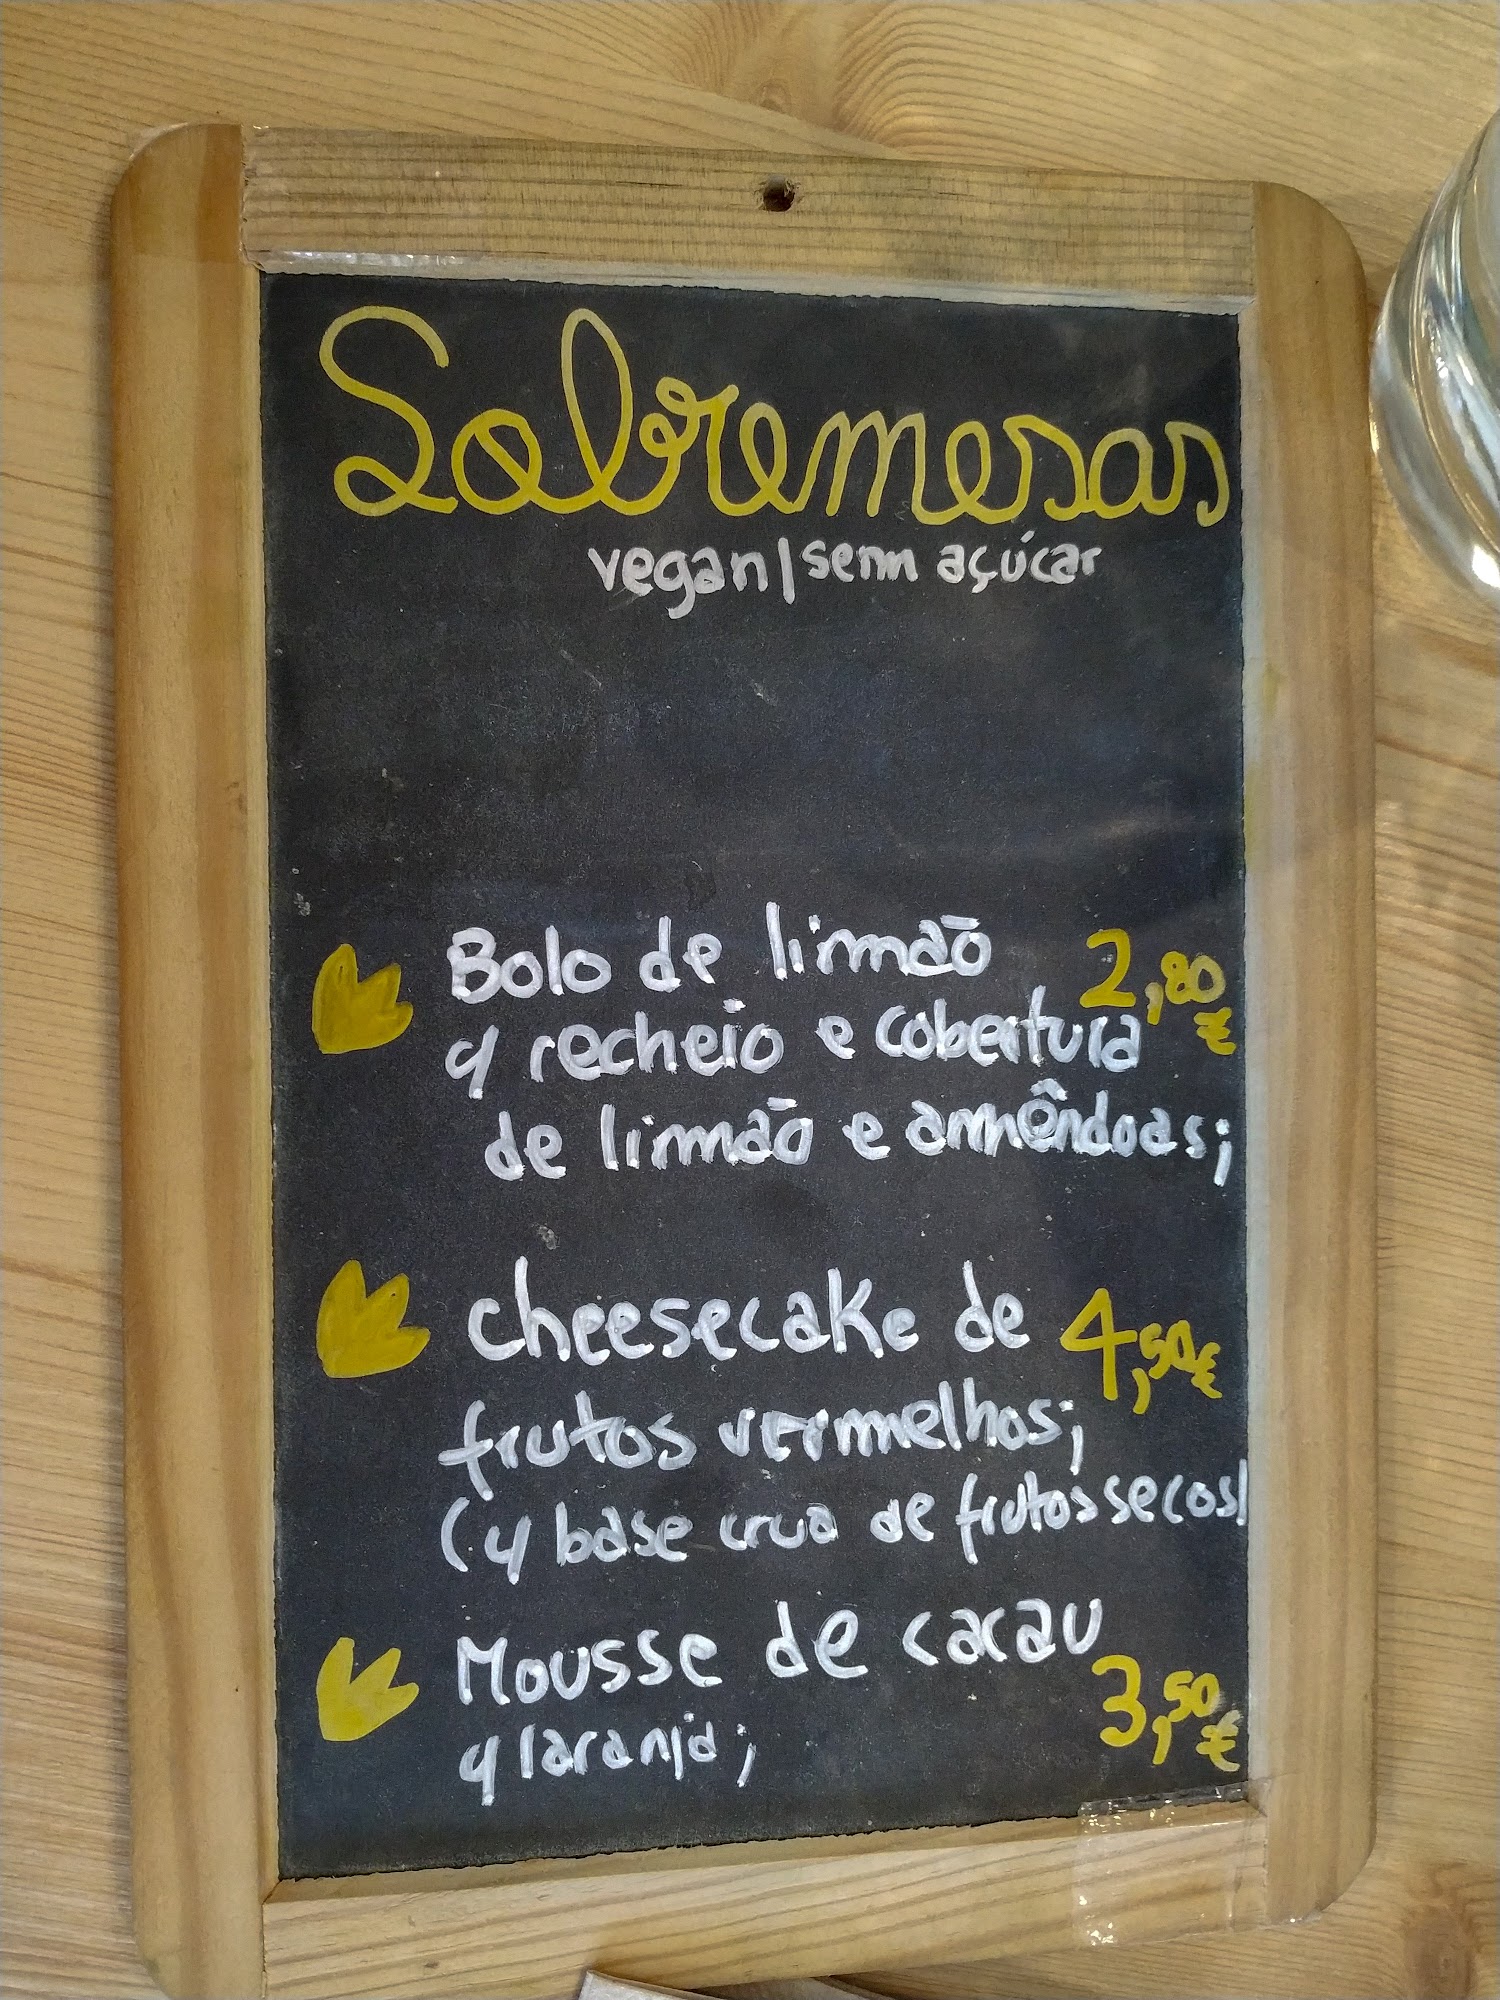 Sobremesas
vegan/sem açúcar
Bolo de limão 2,80
c/ recheio e cobertura €
de limão e amêndoas;
cheesecake de 4,50€
frutos vermelhos;
(c/ base crua de frutos secos)
Mousse de cacau
c/ laranja; 3,50€